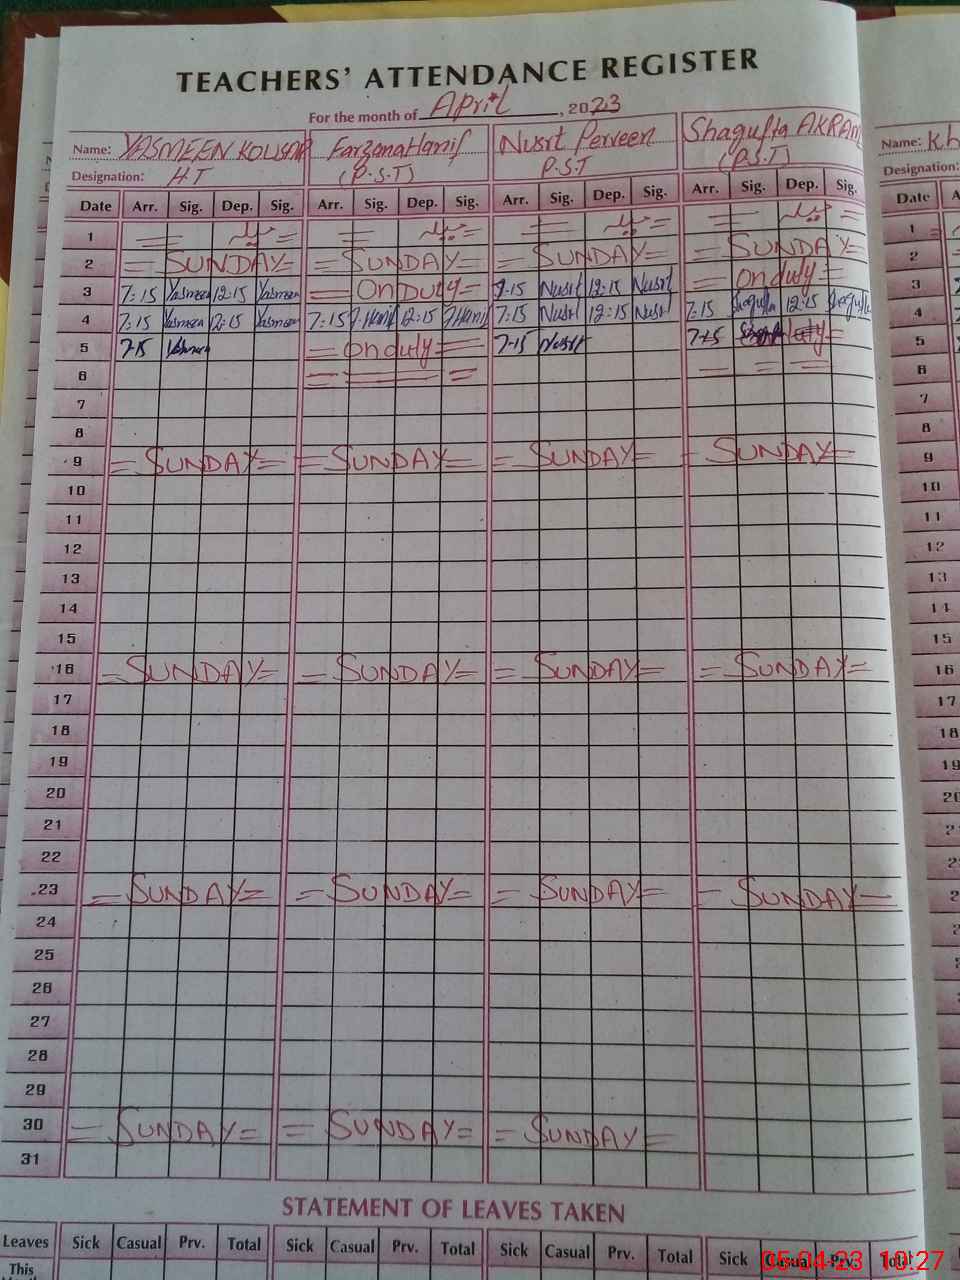 TEACHERS' ATTENDANCE REGISTER
For the month of April, 2023
Name: YASMEEN KOUSAR Farzana Hanif Nusrt Perveen Shagufta AKRAM Name: Kh
Designation: H.T (P.S.T) P.S.T (P.S.T) Designation:
Date Arr. Sig. Dep. Sig. Arr. Sig. Dep. Sig. Arr. Sig. Dep. Sig. Arr. Sig. Dep. Sig. Date A
1 = = = = = = = = 1 =
2 = SUNDAY = = SUNDAY = = SUNDAY = = SUNDAY = 2
3 7:15 Yasmeen 12:15 Yasmeen = On Duty = 7:15 Nusrt 12:15 Nusrt = On duty = 3
4 7:15 Yasmeen 12:15 Yasmeen 7:15 F.Hanif 12:15 F.Hanif 7:15 Nusrt 12:15 Nusrt 7:15 Shagufta 12:15 Shagufta 4
5 7-15 = On duty = 7-15 Nusrt 7-15 5
6 6
7 7
8 8
9 = SUNDAY = = SUNDAY = = SUNDAY = - SUNDAY = 9
10 10
11 11
12 12
13 13
14 14
15 15
16 = SUNDAY = = SUNDAY = = SUNDAY = = SUNDAY = 16
17 17
18 18
19 19
20 20
21 2
22 2
23 = SUNDAY = = SUNDAY = = SUNDAY = - SUNDAY - 2
24
25
26
27
28
29
30 = SUNDAY = = SUNDAY = = SUNDAY =
31
STATEMENT OF LEAVES TAKEN
Leaves Sick Casual Prv. Total Sick Casual Prv. Total Sick Casual Prv. Total Sick Casual Prv. Total
This
05-04-23 10:27